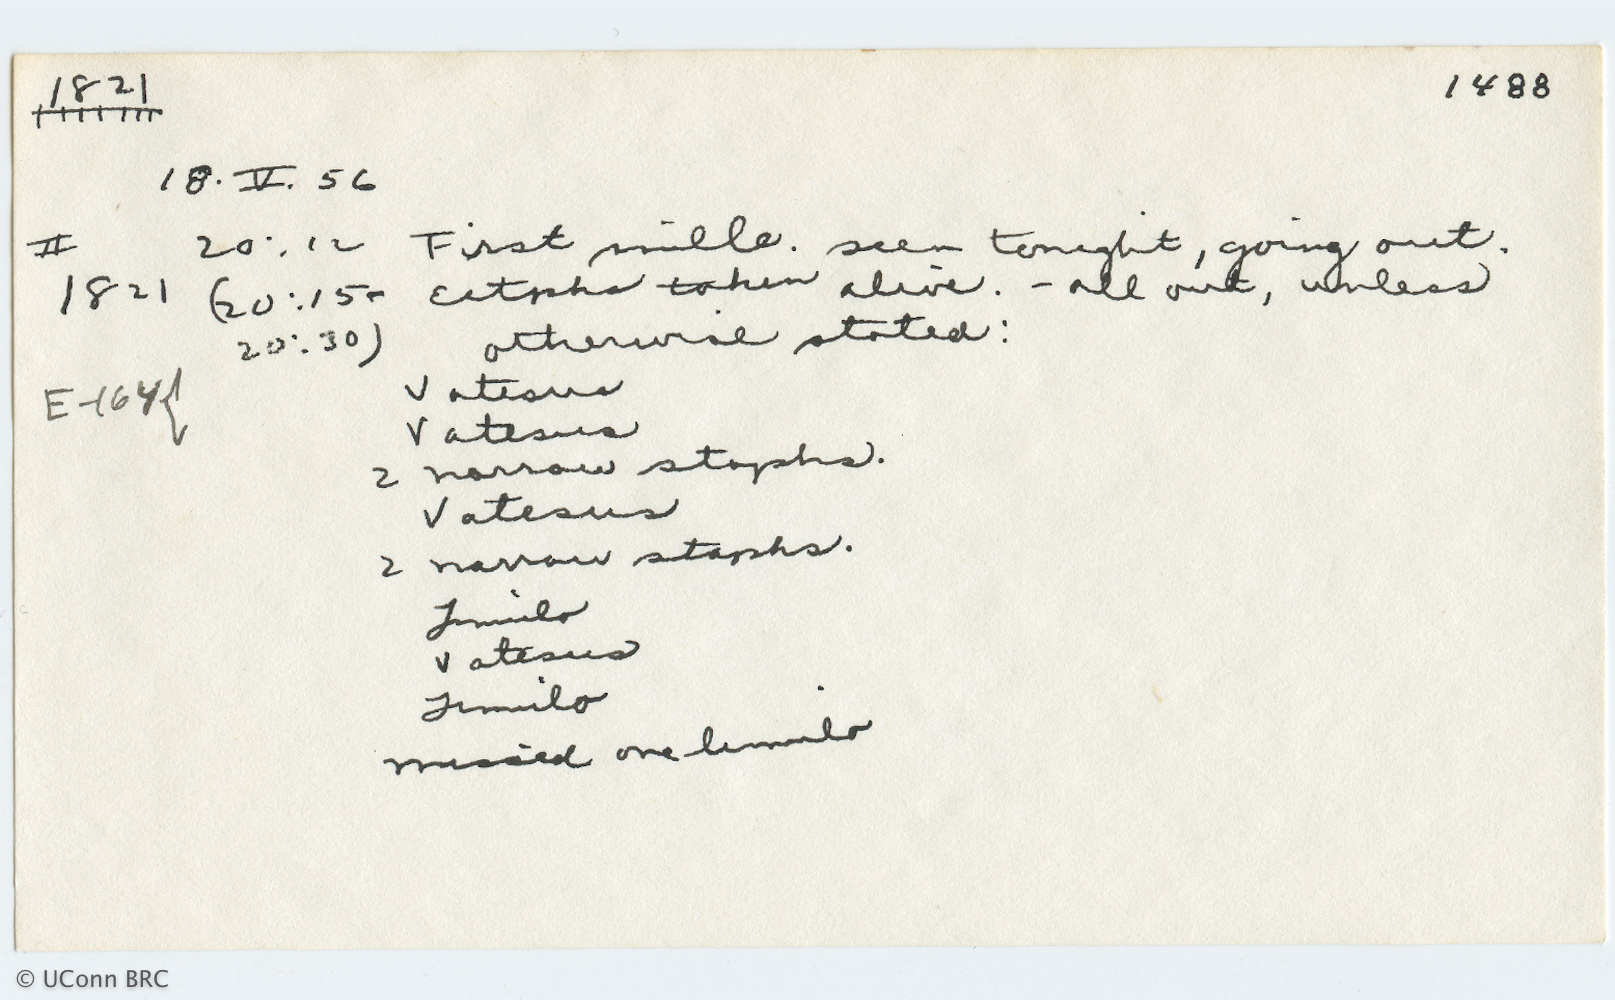 1821
1488
18. V. 56
II 20:12 First mille. seen tonight, going out.
1821 (20:15- Ectophs taken alive. - all out, unless
20:30) otherwise stated:
E-164{ Vatesus
Vatesus
2 narrow staphs.
Vatesus
2 narrow staphs.
Limulo
Vatesus
Limulo
missed one limulo
© UConn BRC